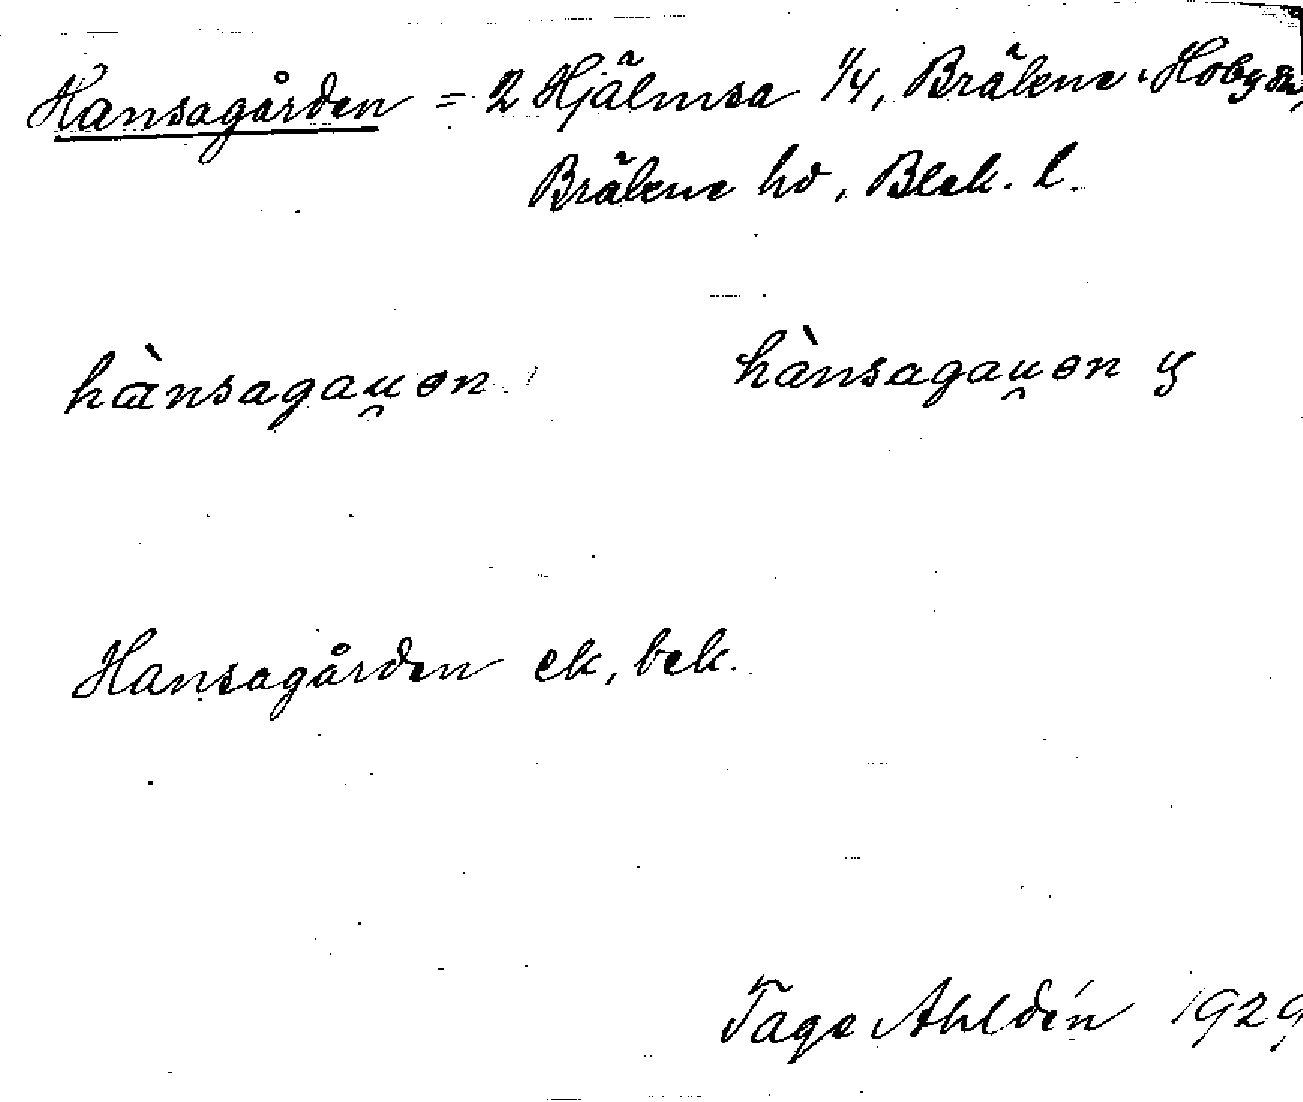 Hansagården = 2 Hjälmsa 1/4, Bräkne-Hoby sn,
Bräkne hd, Blek. l.
hànsagau̯ən hànsagau̯ən y
Hansagården ek, bek.
Tage Ahldén 1929